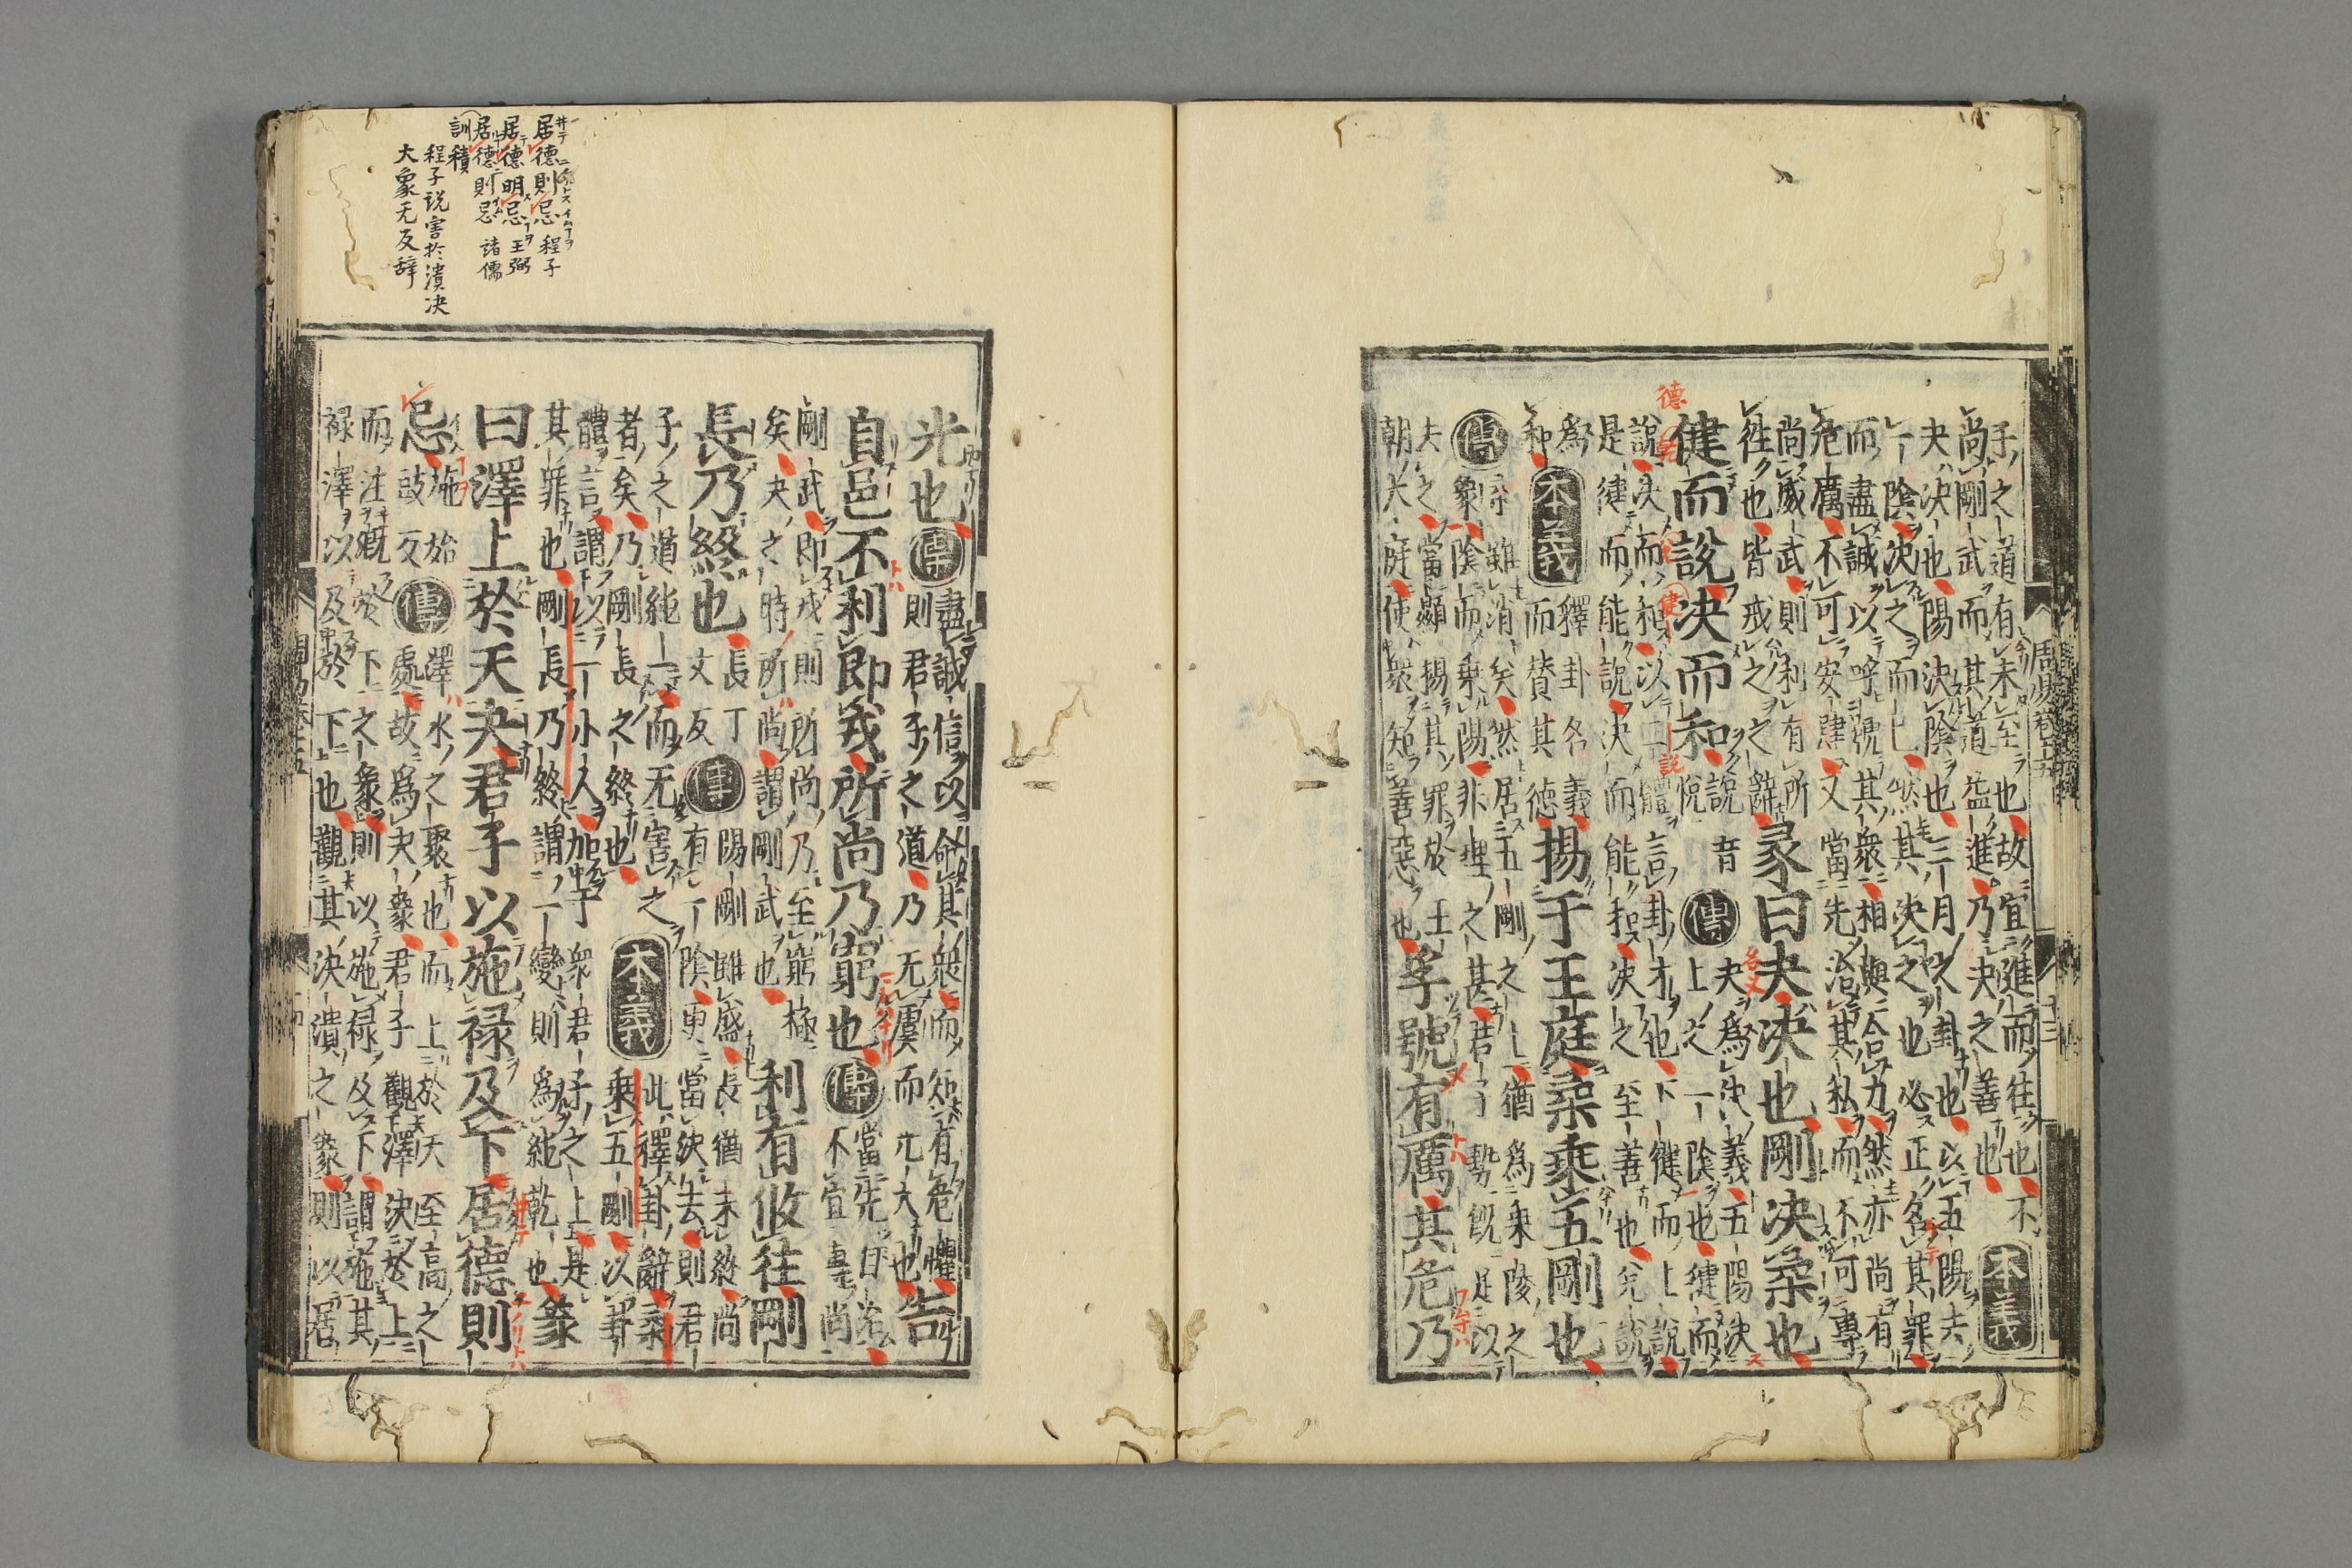 子之道有未至也故宜進而往也不
尚剛武而其道益進乃夬之善也 本義
夬決也陽決陰也三月之卦也以五陽去
一陰決之而已然其決之也必正名其罪
而盡誠以呼號其衆相與合力然亦尚有
危厲不可安肆又當先治其私而不可專
尚威武則利有所
往也皆戒之之辭
彖曰夬決也剛決柔也
健而說決而和
說音
悅
傳
夬爲決義五陽決
上之一陰也健而
說決而和以二體言卦才也下健而上說
是健而能說決而能和決之至善也兌說
爲
和
本義
釋卦名義
而贊其德
揚于王庭柔乘五剛也
傳
柔雖消矣然居五剛之上猶爲乘陵之
象陰而乘陽非理之甚君子勢既足以
去之當顯揚其罪於王
朝大庭使衆知善惡也
孚號有厲其危乃
周易卷十五
十三
德
光也
傳
盡誠信以命其衆而知有危懼
則君子之道乃无虞而光大也
告
自邑不利即戎所尚乃窮也
傳
當先自治
不宜專尚
剛武即戎則所尚乃至窮極
矣夬之時所尚謂剛武也
利有攸往剛
長乃終也
長丁
丈反
傳
陽剛雖盛長猶未終尚
有一陰更當決去則君
子之道純一而无害之
者矣乃剛長之終也
本義
此釋卦辭柔
乘五剛以卦
體言謂以一小人加于衆君子之上是
其罪也剛長乃終謂一變則爲純乾也
象
曰澤上於天夬君子以施祿及下居德則
忌
施始
豉反
傳
澤水之聚也而上於天至高之
處故爲夬象君子觀澤決於上
而注漑於下之象則以施祿及下謂施其
祿澤以及於下也觀其決潰之象則以居
居德則忌 程子
居德明忌 王弼
居德則忌 諸儒
訓積
程子說害於潰決
大象无反辞